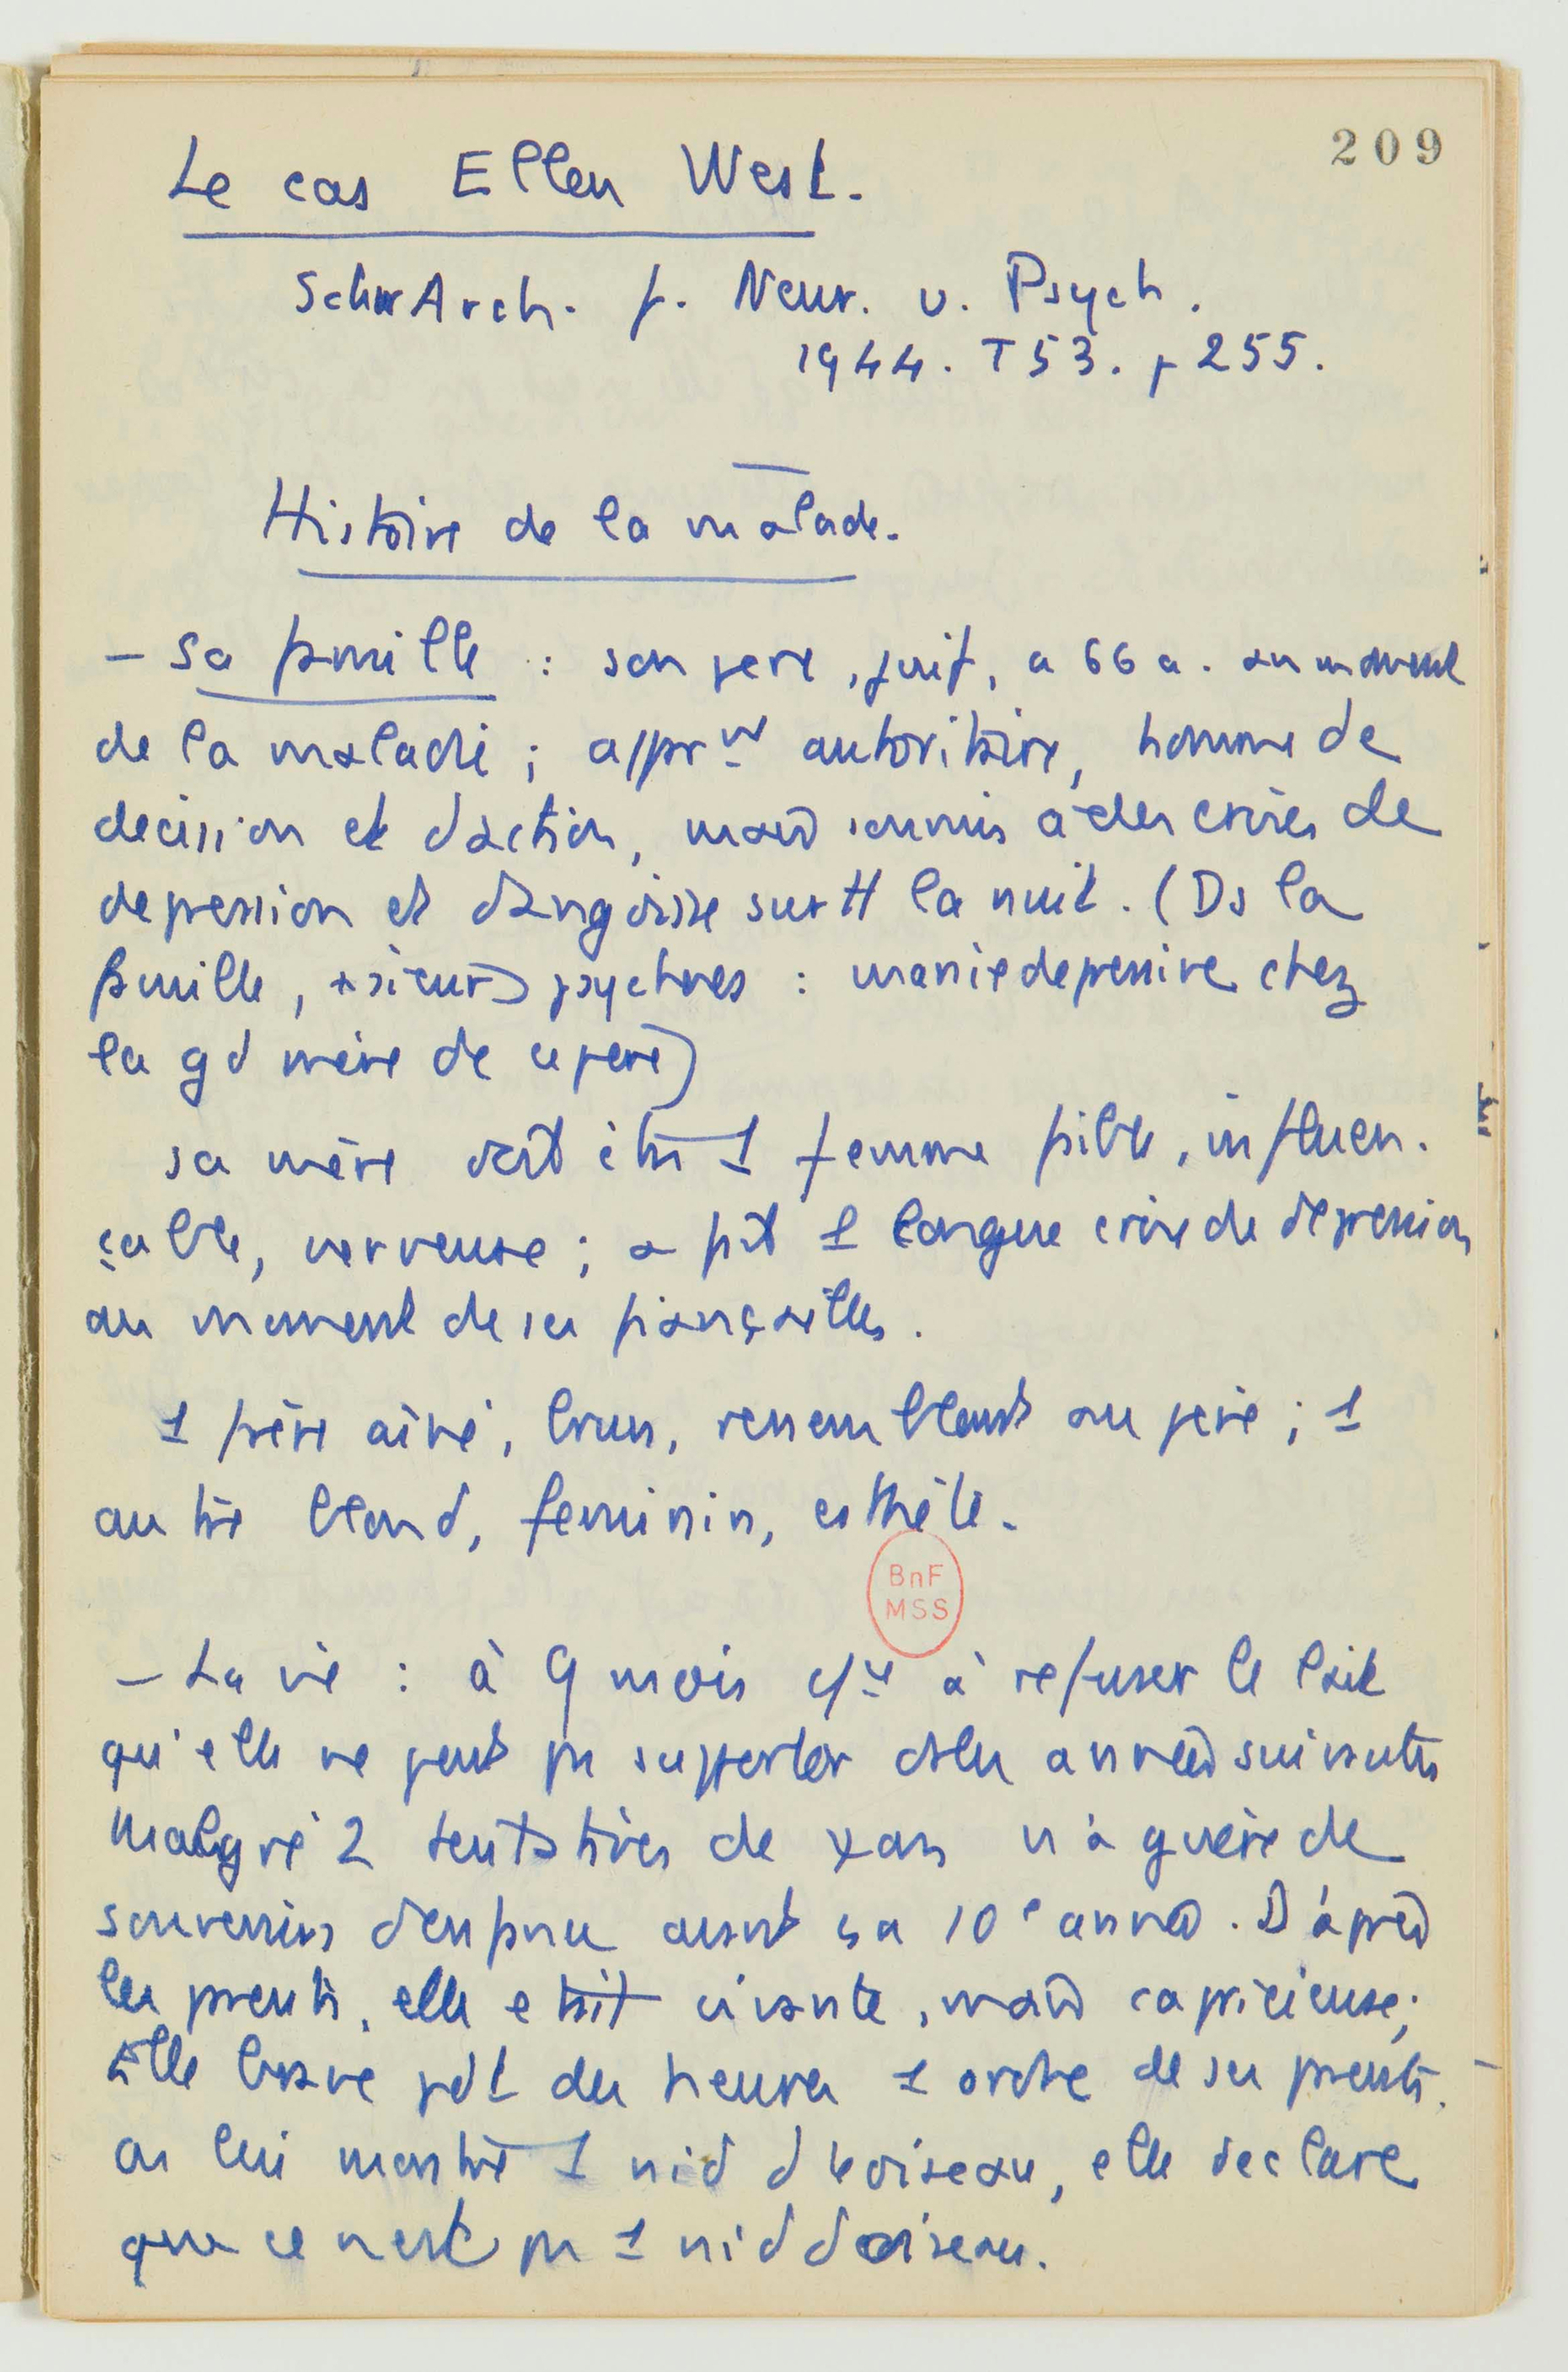 209
Le cas Ellen West.
Schw Arch. f. Neur. u. Psych.
1944. T 53. p 255.
Histoire de la malade.
– Sa famille : son pere, juif, a 66 a. au moment
de la maladie ; appr^nt autoritaire, homme de
decision et d'action, mais soumis à des crises de
depression et d'angoisse surtt la nuit. (Ds la
famille, +sieurs psychoses : manie depressive chez
la gd mère de ce pere)
sa mère doit être 1 femme faible, influen-
çable, nerveuse ; a fait 1 longue crise de depression
au moment de ses fiançailles.
1 frère aîné, brun, ressemblant au père ; 1
autre blond, feminin, esthète.
BnF
MSS
– La vie : à 9 mois à refuser le lait
qu'elle ne peut pas supporter ds les années suivantes
malgré 2 tentatives de n'a guère de
souvenirs d'enfance avant sa 10e année. D'après
les parents, elle etait vivante, mais capricieuse ;
Elle brave pdt des heures 1 ordre de ses parents.
on lui montre 1 nid d'oiseau, elle declare
que ce n'est pas 1 nid d'oiseau.